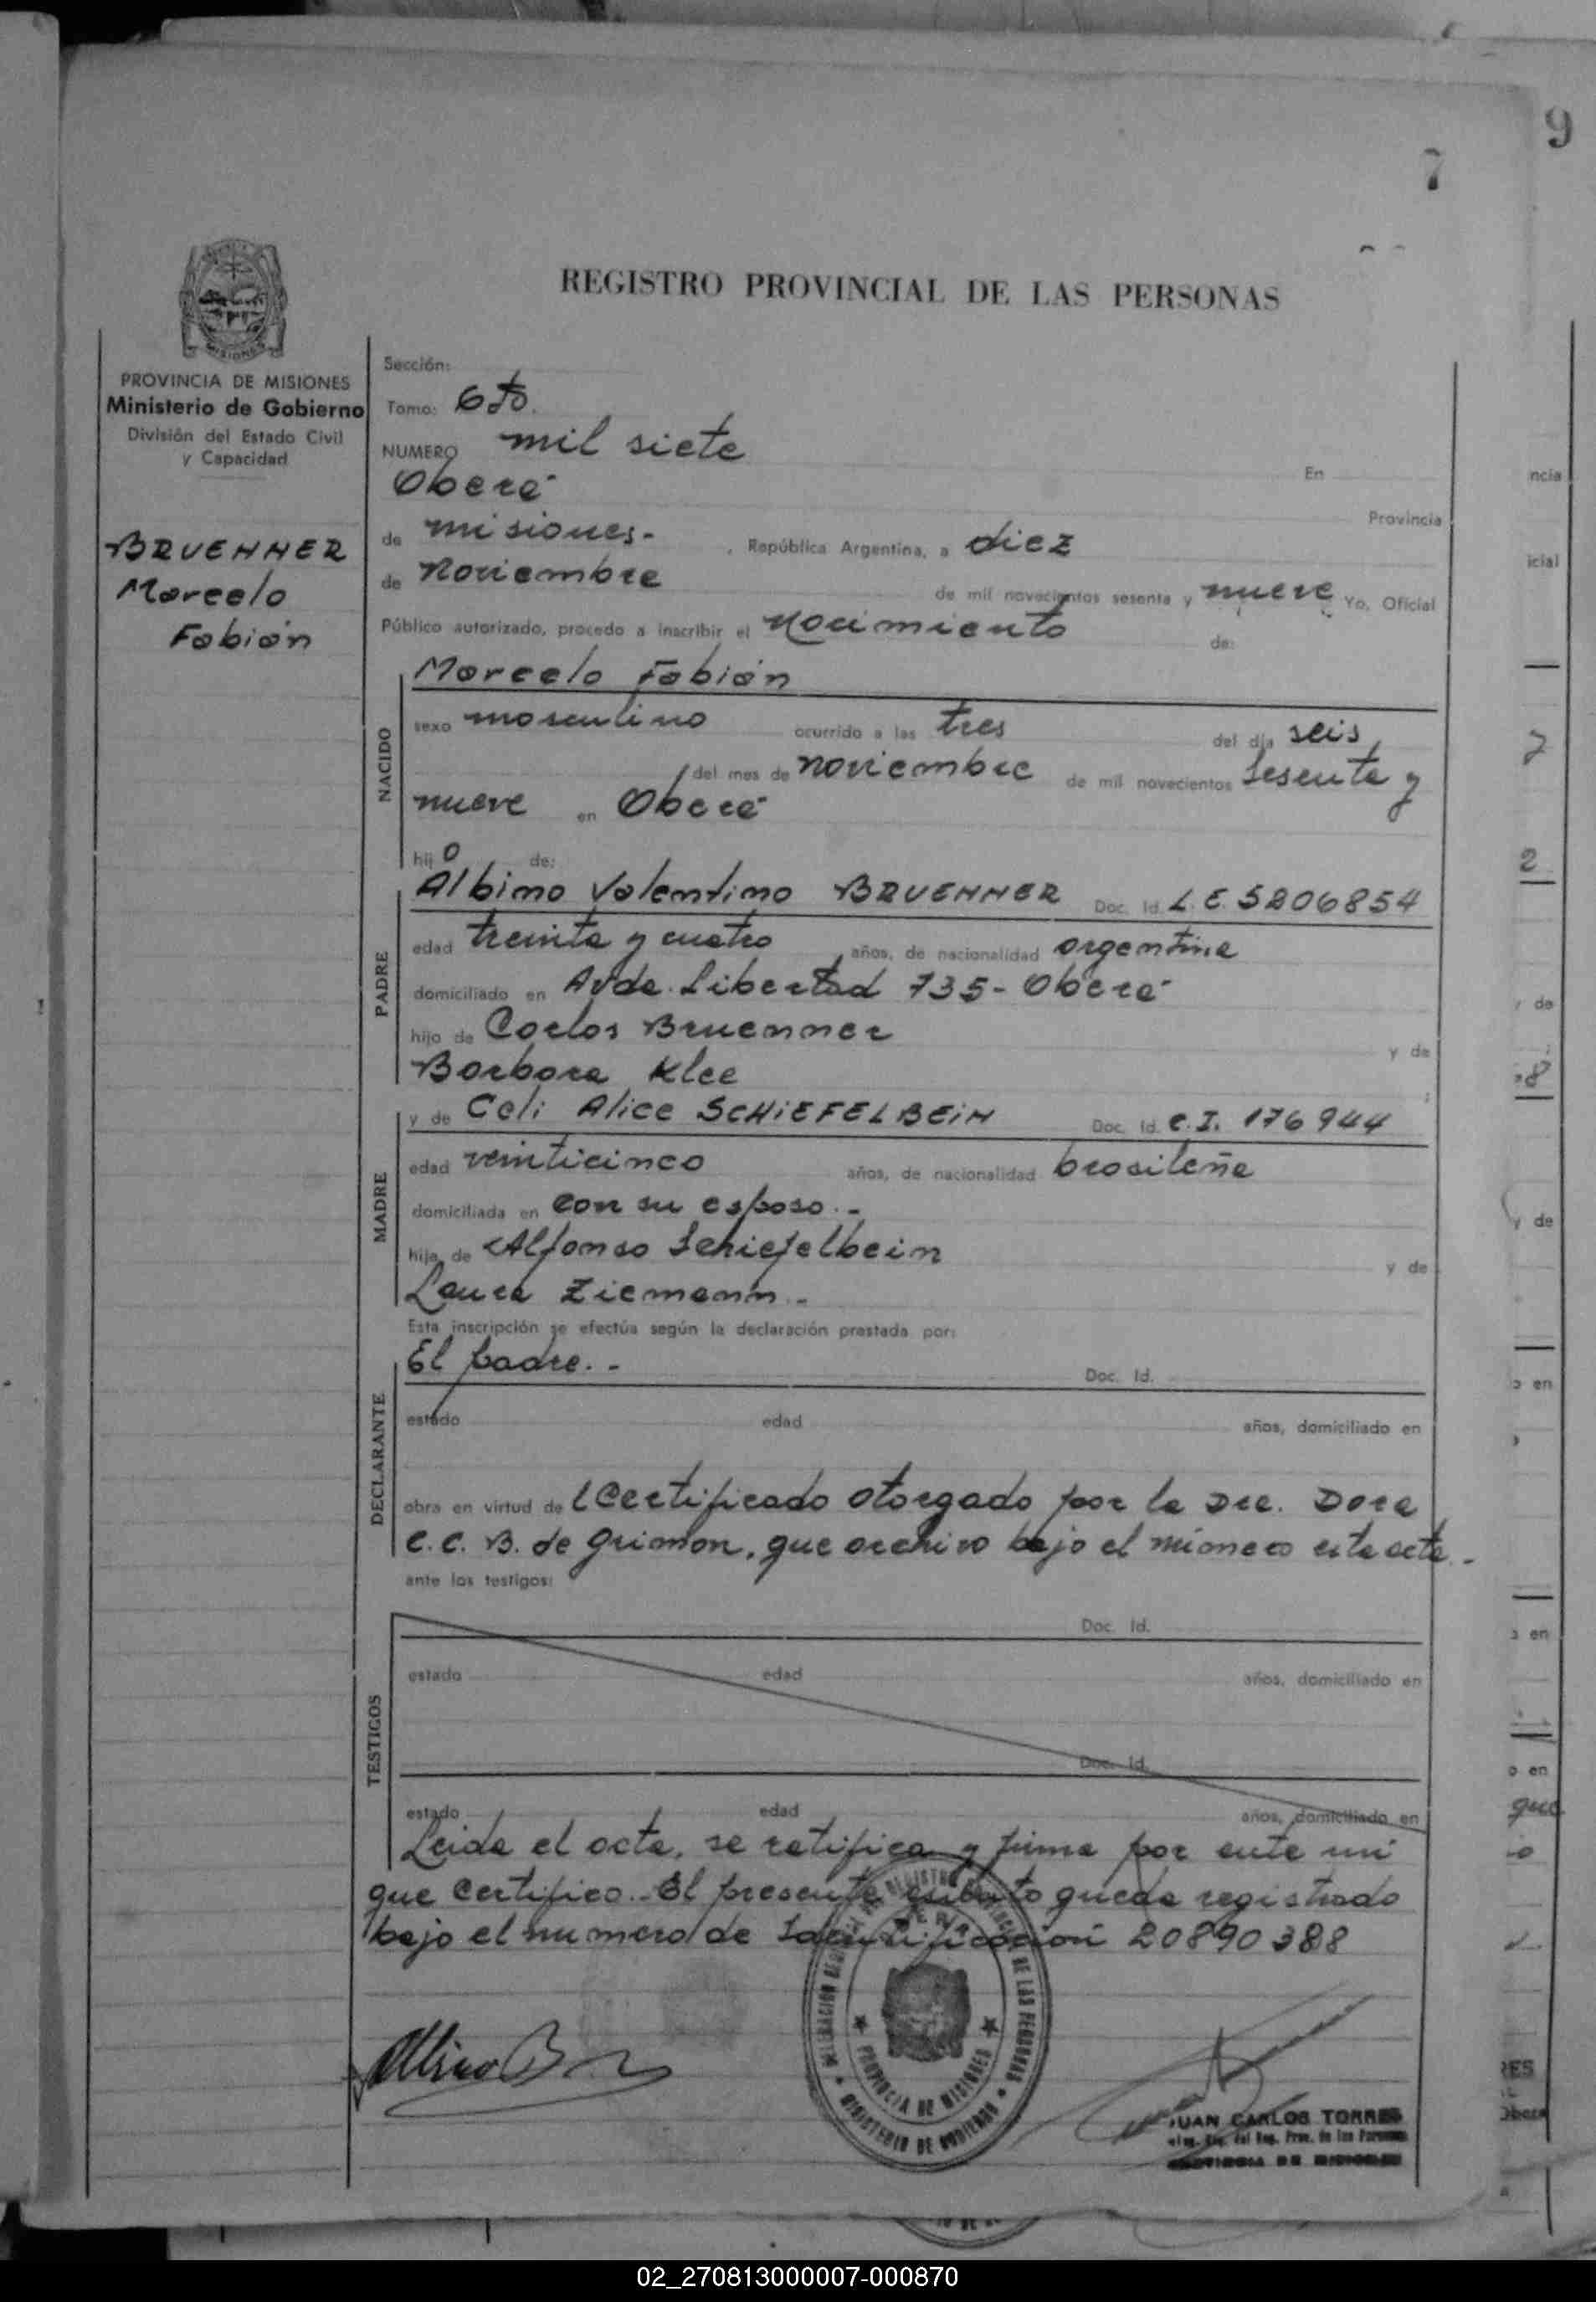 9
7
REGISTRO PROVINCIAL DE LAS PERSONAS
MISIONES
PROVINCIA DE MISIONES
Ministerio de Gobierno
División del Estado Civil
y Capacidad
BRUENNER
Marcelo
Fabián
Sección:
Tomo: 6to.
NUMERO mil siete En
Oberá Provincia
de misiones.- , República Argentina, a diez
de Noviembre de mil novecientos sesenta y nueve Yo, Oficial
Público autorizado, procedo a inscribir el nacimiento de:
NACIDO
Marcelo Fabián
sexo masculino ocurrido a las tres del día seis
del mes de noviembre de mil novecientos sesenta y
nueve en Oberá
hijo de:
PADRE
Albino Valentino BRUENNER Doc. Id. L.E. 5206854
edad treinta y cuatro años, de nacionalidad argentina
domiciliado en Avda. Libertad 735- Oberá
hijo de Carlos Bruenner y de
Barbara Klee
MADRE
y de Celi Alice SCHIEFELBEIN Doc. Id. C.I. 176944
edad veinticinco años, de nacionalidad brasileña
domiciliada en con su esposo.-
hija de Alfonso Schiefelbein y de
Laura Ziemann.-
Esta inscripción se efectúa según la declaración prestada por:
DECLARANTE
El padre.- Doc. Id.
estado edad años, domiciliado en
obra en virtud de Certificado otorgado por la Dra. Dora
C. C. B. de Grimon, que archivo bajo el número esta acta.-
ante los testigos:
TESTIGOS
Doc. Id.
estado edad años, domiciliado en
Doc. Id.
estado edad años, domiciliado en
Leida el acta, se ratifica y firma por ante mi
que certifico.- El presente queda registrado
bajo el numero de Identificación 20890388
PROVINCIA DE MISIONES
MINISTERIO DE GOBIERNO
DE LAS PERSONAS
JUAN CARLOS TORRES
del Reg. Prov. de las Personas
PROVINCIA DE MISIONES
ncia
icial
7
2
y de
y de
en
en
en
que
02_270813000007-000870